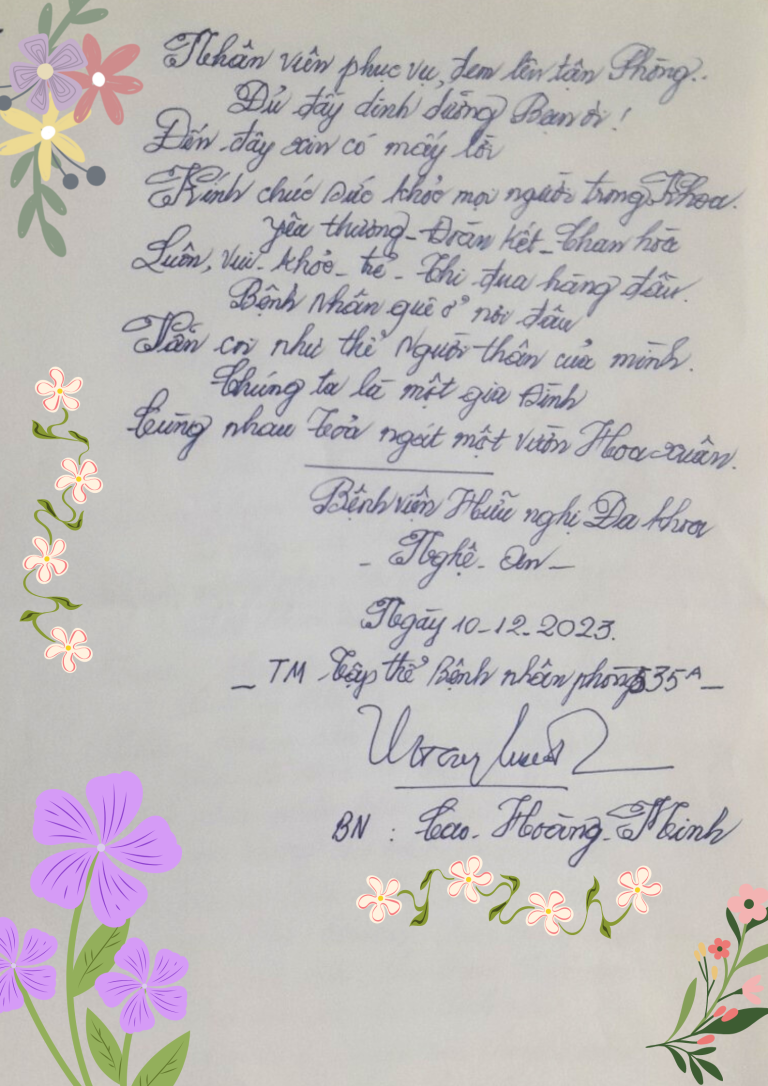 Nhân viên phục vụ, đem lên tận Phòng..
Đủ đầy dinh dưỡng Bạn ơi!
Đến đây xin có mấy lời
Kính chúc sức khỏe mọi người trong Khoa.
yêu thương - Đoàn kết - Chan hòa
Luôn, vui - khỏe - trẻ - Thi đua hàng đầu.
Bệnh nhân quê ở nơi đâu
Vẫn coi như thể Người thân của mình.
Chúng ta là một gia Đình
Cùng nhau Tỏa ngát một vườn Hoa xuân.
Bệnh viện Hữu nghị Đa khoa
- Nghệ - An -
Ngày 10-12-2023.
- TM Tập thể Bệnh nhân phòng 535A -
BN : Cao - Hoàng - Minh